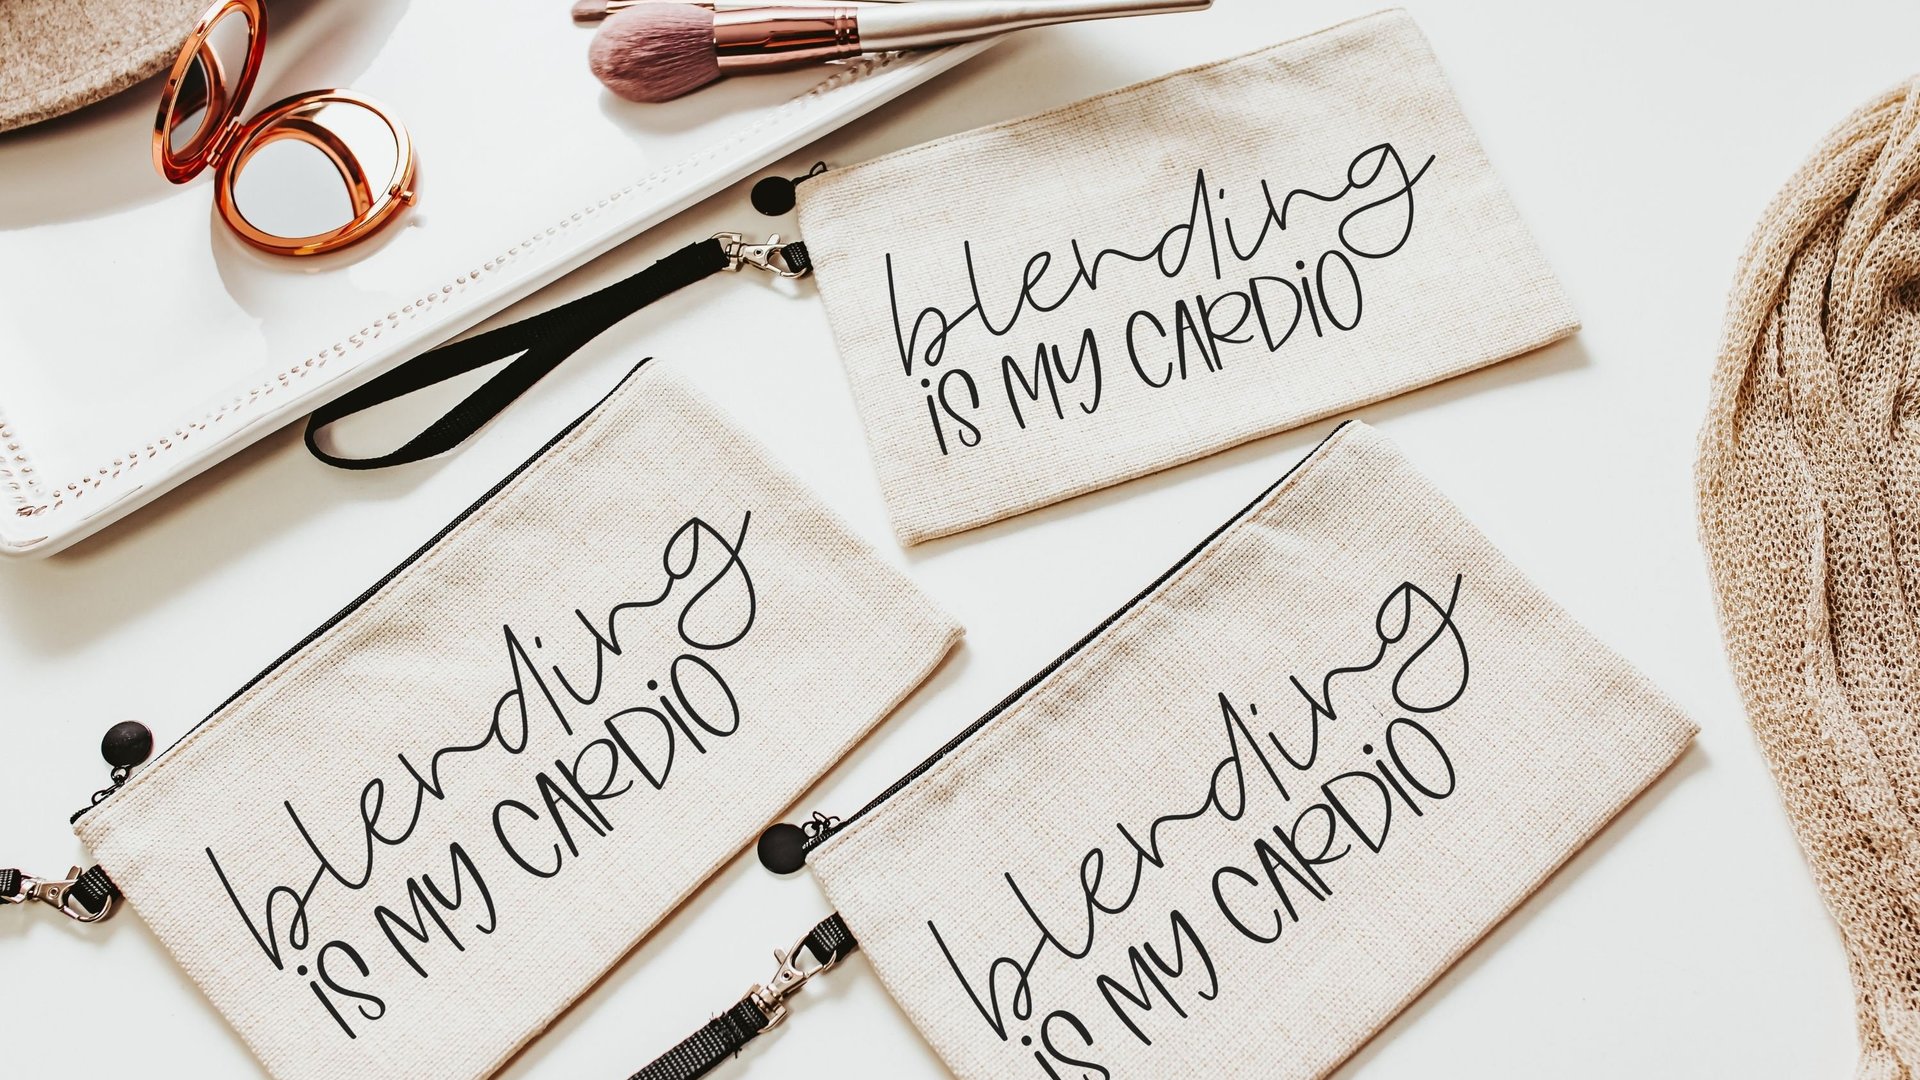 blending
is MY CARDiO
blending
is MY CARDiO
blending
is MY CARDiO